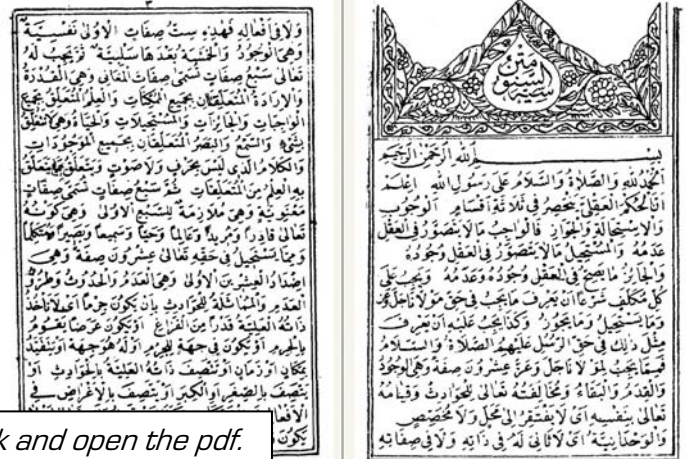 متن
السنوسية
بسم الله الرحمن الرحيم
الحمد لله والصلاة والسلام على رسول الله اعلم
ان الحكم العقلى ينحصر فى ثلاثة اقسام الوجوب
والاستحالة والجواز فالواجب ما لا يتصور فى العقل
عدمه والمستحيل مالا يتصور فى العقل وجوده
والجائز ما يصح فى العقل وجوده وعدمه ويجب على
كل مكلف شرعا ان يعرف ما يجب فى حق مولانا جل وعز
وما يستحيل وما يجوز وكذا يجب عليه ان يعرف
مثل ذلك فى حق الرسل عليهم الصلاة والسلام
فمما يجب لمولانا جل وعز عشرون صفة وهى الوجود
والقدم والبقاء ومخالفته تعالى للحوادث وقيامه
تعالى بنفسه اى لا يفتقر الى محل ولا مخصص
والوحدانية اى لا ثانى له فى ذاته ولا فى صفاته
٣
ولا فى افعاله فهذه ست صفات الاولى نفسية
وهى الوجود والخمسة بعدها سلبية ثم يجب له
تعالى سبع صفات تسمى صفات المعانى وهى القدرة
والارادة المتعلقتان بجميع الممكنات والعلم المتعلق بجميع
الواجبات والجائزات والمستحيلات والحياة وهى لا تتعلق
بشىء والسمع والبصر المتعلقان بجميع الموجودات
والكلام الذى ليس بحرف ولا صوت ويتعلق بما يتعلق
به العلم من المتعلقات ثم سبع صفات تسمى صفات
معنوية وهى ملازمة للسبع الاولى وهى كونه
تعالى قادرا ومريدا وعالما وحيا وسميعا وبصيرا ومتكلما
ومما يستحيل فى حقه تعالى عشرون صفة وهى
اضداد العشرين الاولى وهى العدم والحدوث وطرو
العدم والمماثلة للحوادث بان يكون جرما اى لا تأخذ
ذاته العلية قدرا من الفراغ او يكون عرضا يقوم
بالجرم او يكون فى جهة للجرم او له هو جهة او يتقيد
بمكان او زمان او تتصف ذاته العلية بالحوادث او
يتصف بالصغر او الكبر او يتصف بالاغراض فى
الافعال
يكون
k and open the pdf.